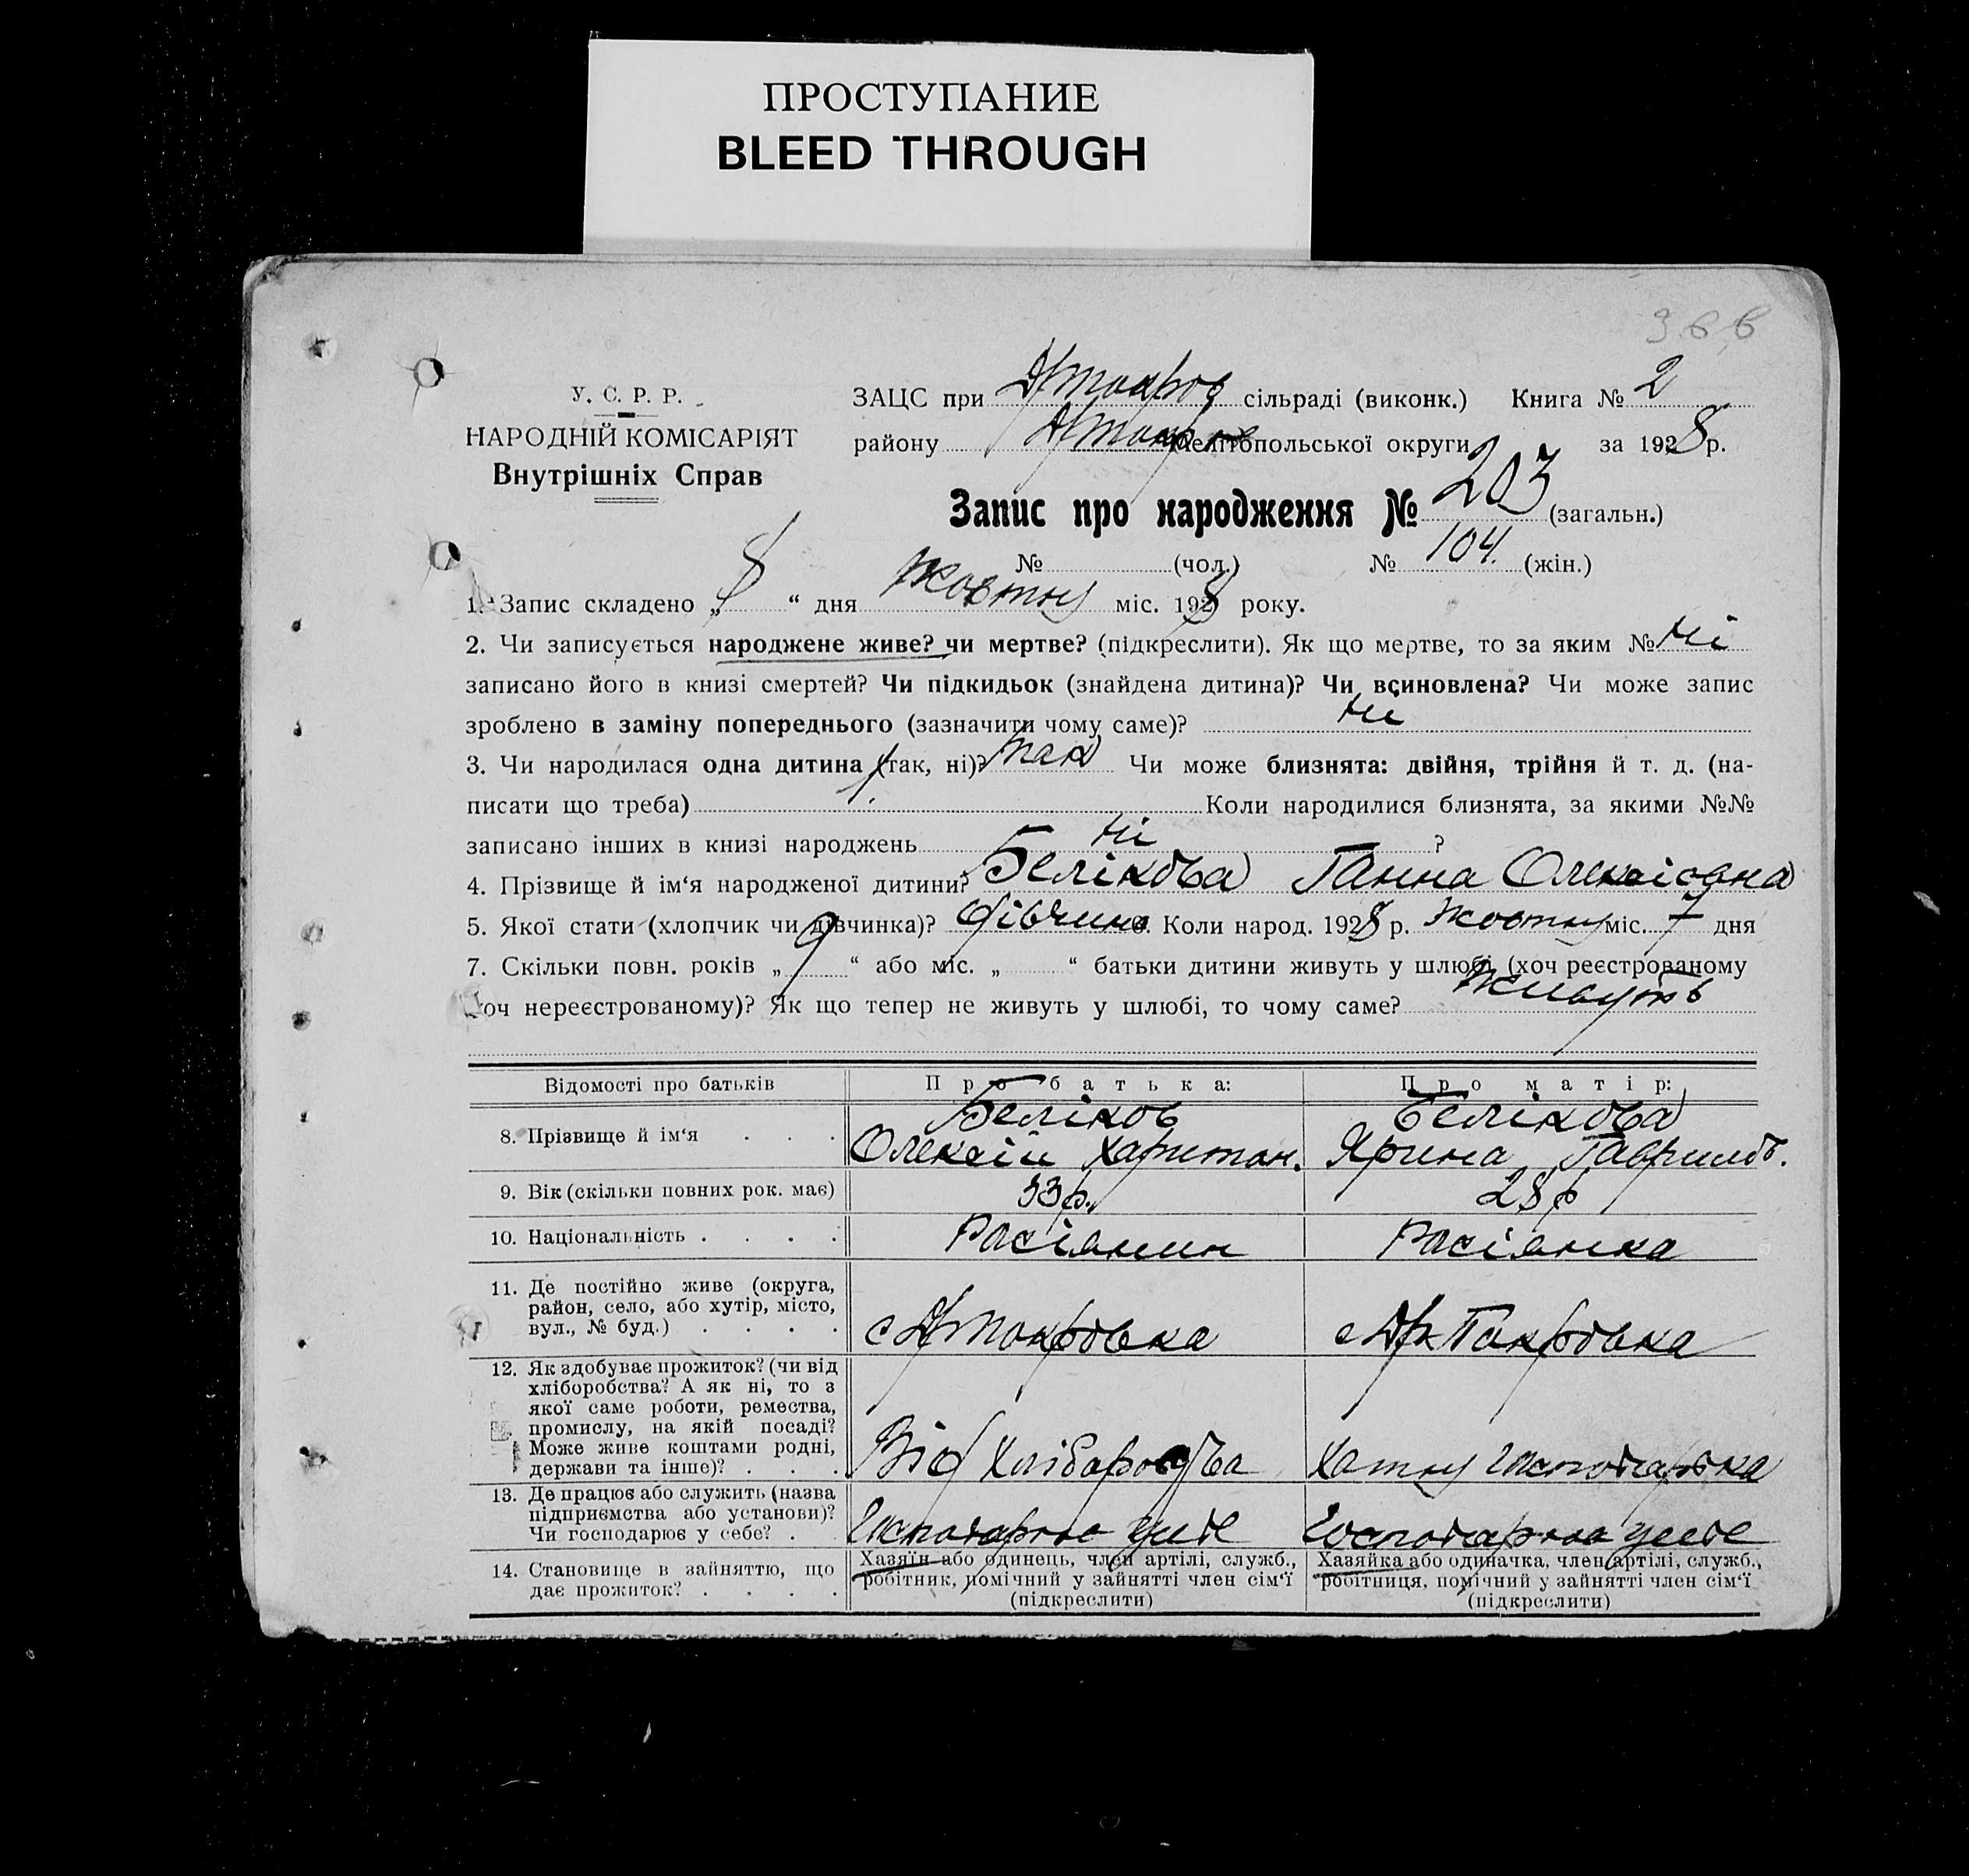 ПРОСТУПАНИЕ
BLEED THROUGH
366
У. С. Р. Р.
НАРОДНІЙ КОМІСАРІЯТ
Внутрішніх Справ
ЗАЦС при сільраді (виконк.) Книга № 2
району Мелітопольської округи за 1928 р.
Запис про народження № 203 (загальн.)
№ (чол.) № 104. (жін.)
1. Запис складено „ 8 “ дня жовтню міс. 1928 року.
2. Чи записується народжене живе? чи мертве? (підкреслити). Як що мертве, то за яким № ні
записано його в книзі смертей? Чи підкидьок (знайдена дитина)? Чи всиновлена? Чи може запис
зроблено в заміну попереднього (зазначити чому саме)? ні
3. Чи народилася одна дитина (так, ні)? так Чи може близнята: двійня, трійня й т. д. (на-
писати що треба) Коли народилися близнята, за якими №№
записано інших в книзі народжень ні ?
4. Прізвище й ім‘я народженої дитини? Белікова Ганна Олексісвна
5. Якої стати (хлопчик чи дівчинка)? дівчина 6. Коли народ. 1928 р. жовтню міс. 7 дня
7. Скільки повн. років „ 9 “ або міс. „ “ батьки дитини живуть у шлюбі (хоч реєстрованому
хоч нереєстрованому)? Як що тепер не живуть у шлюбі, то чому саме? живуть
Відомості про батьків Про батька: Про матір:
8. Прізвище й ім‘я . . . Беліков Олексій Харитон. Белікова Ярина Гаврилов.
9. Вік (скільки повних рок. має) 33 р. 28 р
10. Національність . . . . Расіянин Расіянка
11. Де постійно живе (округа,
район, село, або хутір, місто,
вул., № буд.) . . . . с
12. Як здобуває прожиток? (чи від
хліборобства? А як ні, то з
якої саме роботи, ремества,
промислу, на якій посаді?
Може живе коштами родні,
держави та інше)? . . . Від Хатню господарка
13. Де працює або служить (назва
підприємства або установи)?
Чи господарює у себе? . Господарює у себе Господарює у себе
14. Становище в зайняттю, що
дає прожиток? . . . .
Хазяїн або одинець, член артілі, служб.,
робітник, помічний у зайнятті член сім‘ї
(підкреслити)
Хазяйка або одиначка, член артілі, служб.,
робітниця, помічний у зайнятті член сім‘ї
(підкреслити)